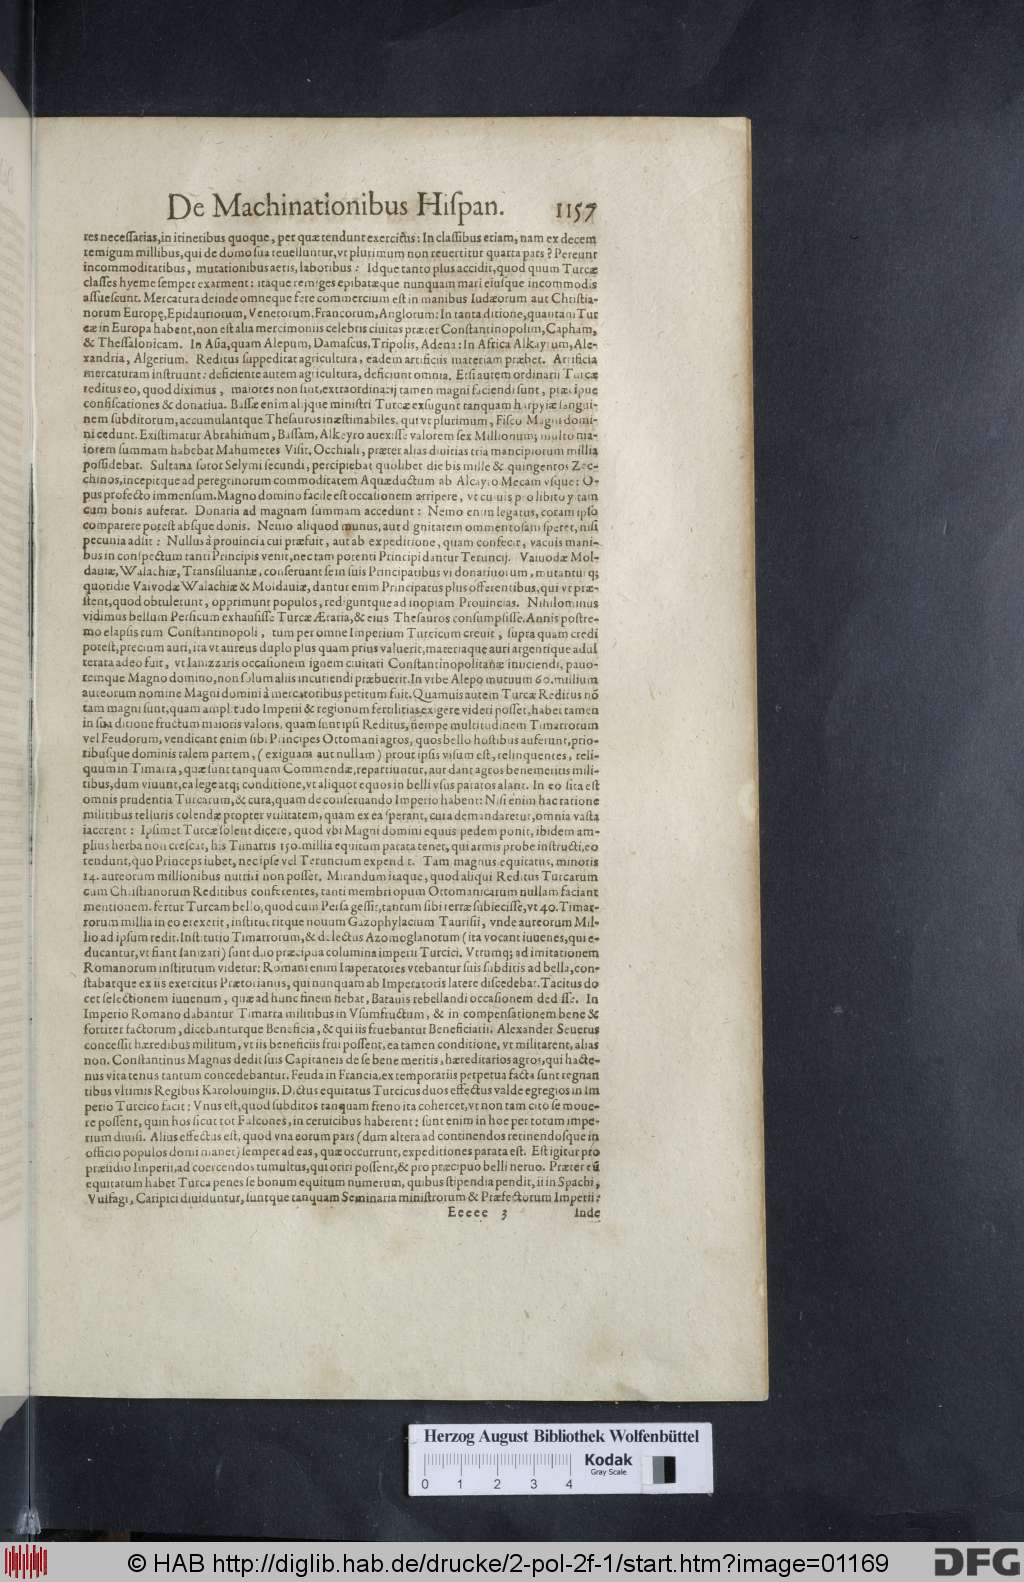 De Machinationibus Hiſpan. 1157
res neceſſarias, in itineribus quoque, per quæ tendunt exercitus: In claſſibus etiam, nam ex decem
remigum millibus, qui de domo ſua reuelluntur, vt plurimum non reuertitur quarta pars? Pereunt
incommoditatibus, mutationibus aeris, laboribus: Idque tanto plus accidit, quod quum Turcæ
claſſes hyeme ſemper exarment: itaque remiges epibatæque nunquam mari eiuſque incommodis
aſſueſcunt. Mercatura deinde omneque fere commercium eſt in manibus Iudæorum aut Chriſtia-
norum Europę, Epidauriorum, Venetorum, Francorum, Anglorum: In tanta ditione, quantam Tur
cæ in Europa habent, non eſt alia mercimoniis celebris ciuitas præter Conſtantinopolim, Capham,
& Theſſalonicam. In Aſia, quam Alepum, Damaſcus, Tripolis, Adena: In Africa Alkayrum, Ale-
xandria, Algerium. Reditus ſuppeditat agricultura, eadem artificiis materiam præbet. Artificia
mercaturam inſtruunt: deficiente autem agricultura, deficiunt omnia. Etſi autem ordinarii Turcæ
reditus eo, quod diximus, maiores non ſint, extraordinarij tamen magni faciendi ſunt, præcipue
confiſcationes & donatiua. Baſſæ enim alijque miniſtri Turcæ exſugunt tanquam harpyiæ ſangui-
nem ſubditorum, accumulantque Theſauros inæſtimabiles, qui vt plurimum, Fiſco Magni domi-
ni cedunt. Exiſtimatur Abrahimum, Baſſam, Alkeyro auexiſſe valorem ſex Millionum; multo ma-
iorem ſummam habebat Mahumetes Viſir, Occhiali, præter alias diuitias tria mancipiorum millia
poſſidebat. Sultana ſoror Selymi ſecundi, percipiebat quolibet die bis mille & quingentos Zec-
chinos, incepitque ad peregrinorum commoditatem Aquæductum ab Alcayro Mecam vſque: O-
pus profecto immenſum. Magno domino facile eſt occaſionem arripere, vt cuiuis pro libito vitam
cum bonis auferat. Donaria ad magnam ſummam accedunt: Nemo enim legatus, coram ipſo
comparere poteſt abſque donis. Nemo aliquod munus, aut dignitatem ommentoſam ſperet, niſi
pecunia adſit: Nullus à prouincia cui præfuit, aut ab expeditione, quam confecit, vacuis mani-
bus in conſpectum tanti Principis venit, nec tam potenti Principi dantur Teruncij. Vaiuodæ Mol-
dauiæ, Walachiæ, Transſiluaniæ, conſeruant ſe in ſuis Principatibus vi donariuorum, mutanturq;
quotidie Vaivodæ Walachiæ & Moldauiæ, dantur enim Principatus plus offerentibus, qui vt præ-
ſtent, quod obtulerunt, opprimunt populos, rediguntque ad inopiam Prouincias. Nihilominus
vidimus bellum Perſicum exhauſiſſe Turcæ Æraria, & eius Theſauros conſumpſiſſe. Annis poſtre-
mo elapſis tum Conſtantinopoli, tum per omne Imperium Turcicum creuit, ſupra quam credi
poteſt, precium auri, ita vt aureus duplo plus quam prius valuerit, materiaque auri argentique adul
terata adeo fuit, vt Ianizzaris occaſionem ignem ciuitati Conſtantinopolitanæ iniiciendi, pauo-
remque Magno domino, non ſolum aliis incutiendi præbuerit. In vrbe Alepo mutuum 60. millium
aureorum nomine Magni domini à mercatoribus petitum fuit. Quamuis autem Turcæ Reditus nō
tam magni ſunt, quam amplitudo Imperii & regionum fertilitas exigere videri poſſet, habet tamen
in ſua ditione fructum maioris valoris, quam ſunt ipſi Reditus, nempe multitudinem Timarrorum
vel Feudorum, vendicant enim ſibi Principes Ottomani agros, quos bello hoſtibus auferunt, prio-
ribuſque dominis talem partem, (exiguam aut nullam) prout ipſis viſum eſt, relinquentes, reli-
quum in Timarra, quæ ſunt tanquam Commendæ, repartiuntur, aut dant agros benemeritis mili-
tibus, dum viuunt, ea lege atq; conditione, vt aliquot equos in belli vſus paratos alant. In eo ſita eſt
omnis prudentia Turcarum, & cura, quam de conſeruando Imperio habent: Niſi enim hac ratione
militibus telluris colendæ propter vtilitatem, quam ex ea ſperant, cura demandaretur, omnia vaſta
iacerent: Ipſimet Turcæ ſolent dicere, quod vbi Magni domini equus pedem ponit, ibidem am-
plius herba non creſcat, his Timarris 150. millia equitum parata tenet, qui armis probe inſtructi, eo
tendunt, quo Princeps iubet, nec ipſe vel Teruncium expendit. Tam magnus equitatus, minoris
14. aureorum millionibus nutriri non poſſet. Mirandum itaque, quod aliqui Reditus Turcarum
cum Chriſtianorum Reditibus conferentes, tanti membri opum Ottomanicarum nullam faciant
mentionem. fertur Turcam bello, quod cum Perſa geſſit, tantum ſibi terræ ſubieciſſe, vt 40. Timar-
rorum millia in eo erexerit, inſtitueritque nouum Gazophylacium Tauriſii, vnde aureorum Mil-
lio ad ipſum redit. Inſtitutio Timarrorum, & delectus Azomoglanorum (ita vocant iuuenes, qui e-
ducantur, vt fiant Ianizari) ſunt duo præcipua columina imperii Turcici. Vtrumq; ad imitationem
Romanorum inſtitutum videtur: Romani enim Imperatores vtebantur ſuis ſubditis ad bella, con-
ſtabatque ex iis exercitus Prætorianus, qui nunquam ab Imperatoris latere diſcedebat. Tacitus do
cet ſelectionem iuuenum, quæ ad hunc finem fiebat, Batauis rebellandi occaſionem dediſſe. In
Imperio Romano dabantur Timarra militibus in Vſumfructum, & in compenſationem bene &
fortiter factorum, dicebanturque Beneficia, & qui iis fruebantur Beneficiarii. Alexander Seuerus
conceſſit hæredibus militum, vt iis beneficiis frui poſſent, ea tamen conditione, vt militarent, alias
non. Conſtantinus Magnus dedit ſuis Capitaneis de ſe bene meritis, hæreditarios agros, qui hacte-
nus vita tenus tantum concedebantur. Feuda in Francia, ex temporariis perpetua facta ſunt regnan
tibus vltimis Regibus Karolouingiis. Dictus equitatus Turcicus duos effectus valde egregios in Im
perio Turcico facit: Vnus eſt, quod ſubditos tanquam freno ita cohercet, vt non tam cito ſe moue-
re poſſent, quin hos ſicut tot Falcones, in ceruicibus haberent: ſunt enim in hoc per totum impe-
rium diuiſi. Alius effectus eſt, quod vna eorum pars (dum altera ad continendos retinendoſque in
officio populos domi manet) ſemper ad eas, quæ occurrunt, expeditiones parata eſt. Eſt igitur pro
præſidio Imperii, ad coercendos tumultus, qui oriri poſſent, & pro præcipuo belli neruo. Præter eū
equitatum habet Turca penes ſe bonum equitum numerum, quibus ſtipendia pendit, ii in Spachi,
Vulfagi, Caripici diuiduntur, ſuntque tanquam Seminaria miniſtrorum & Præfectorum Imperii:
Eeeee 3 Inde
Herzog August Bibliothek Wolfenbüttel
Kodak
Gray Scale
0 1 2 3 4
© HAB http://diglib.hab.de/drucke/2-pol-2f-1/start.htm?image=01169
DFG